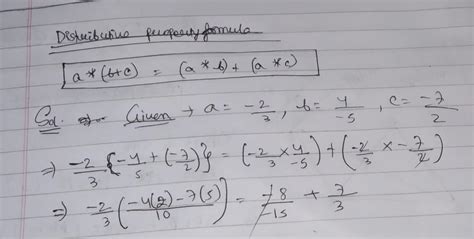 Distributive property formula
a * (b+c) = (a * b) + (a * c)
Given → a = -2/3, b = 4/-5, c = -7/2
⇒ -2/3 {-4/5 + (-7/2)} = (-2/3 × 4/-5) + (-2/3 × -7/2)
⇒ -2/3 (-4(2) - 7(5) / 10) = -8/-15 + 7/3